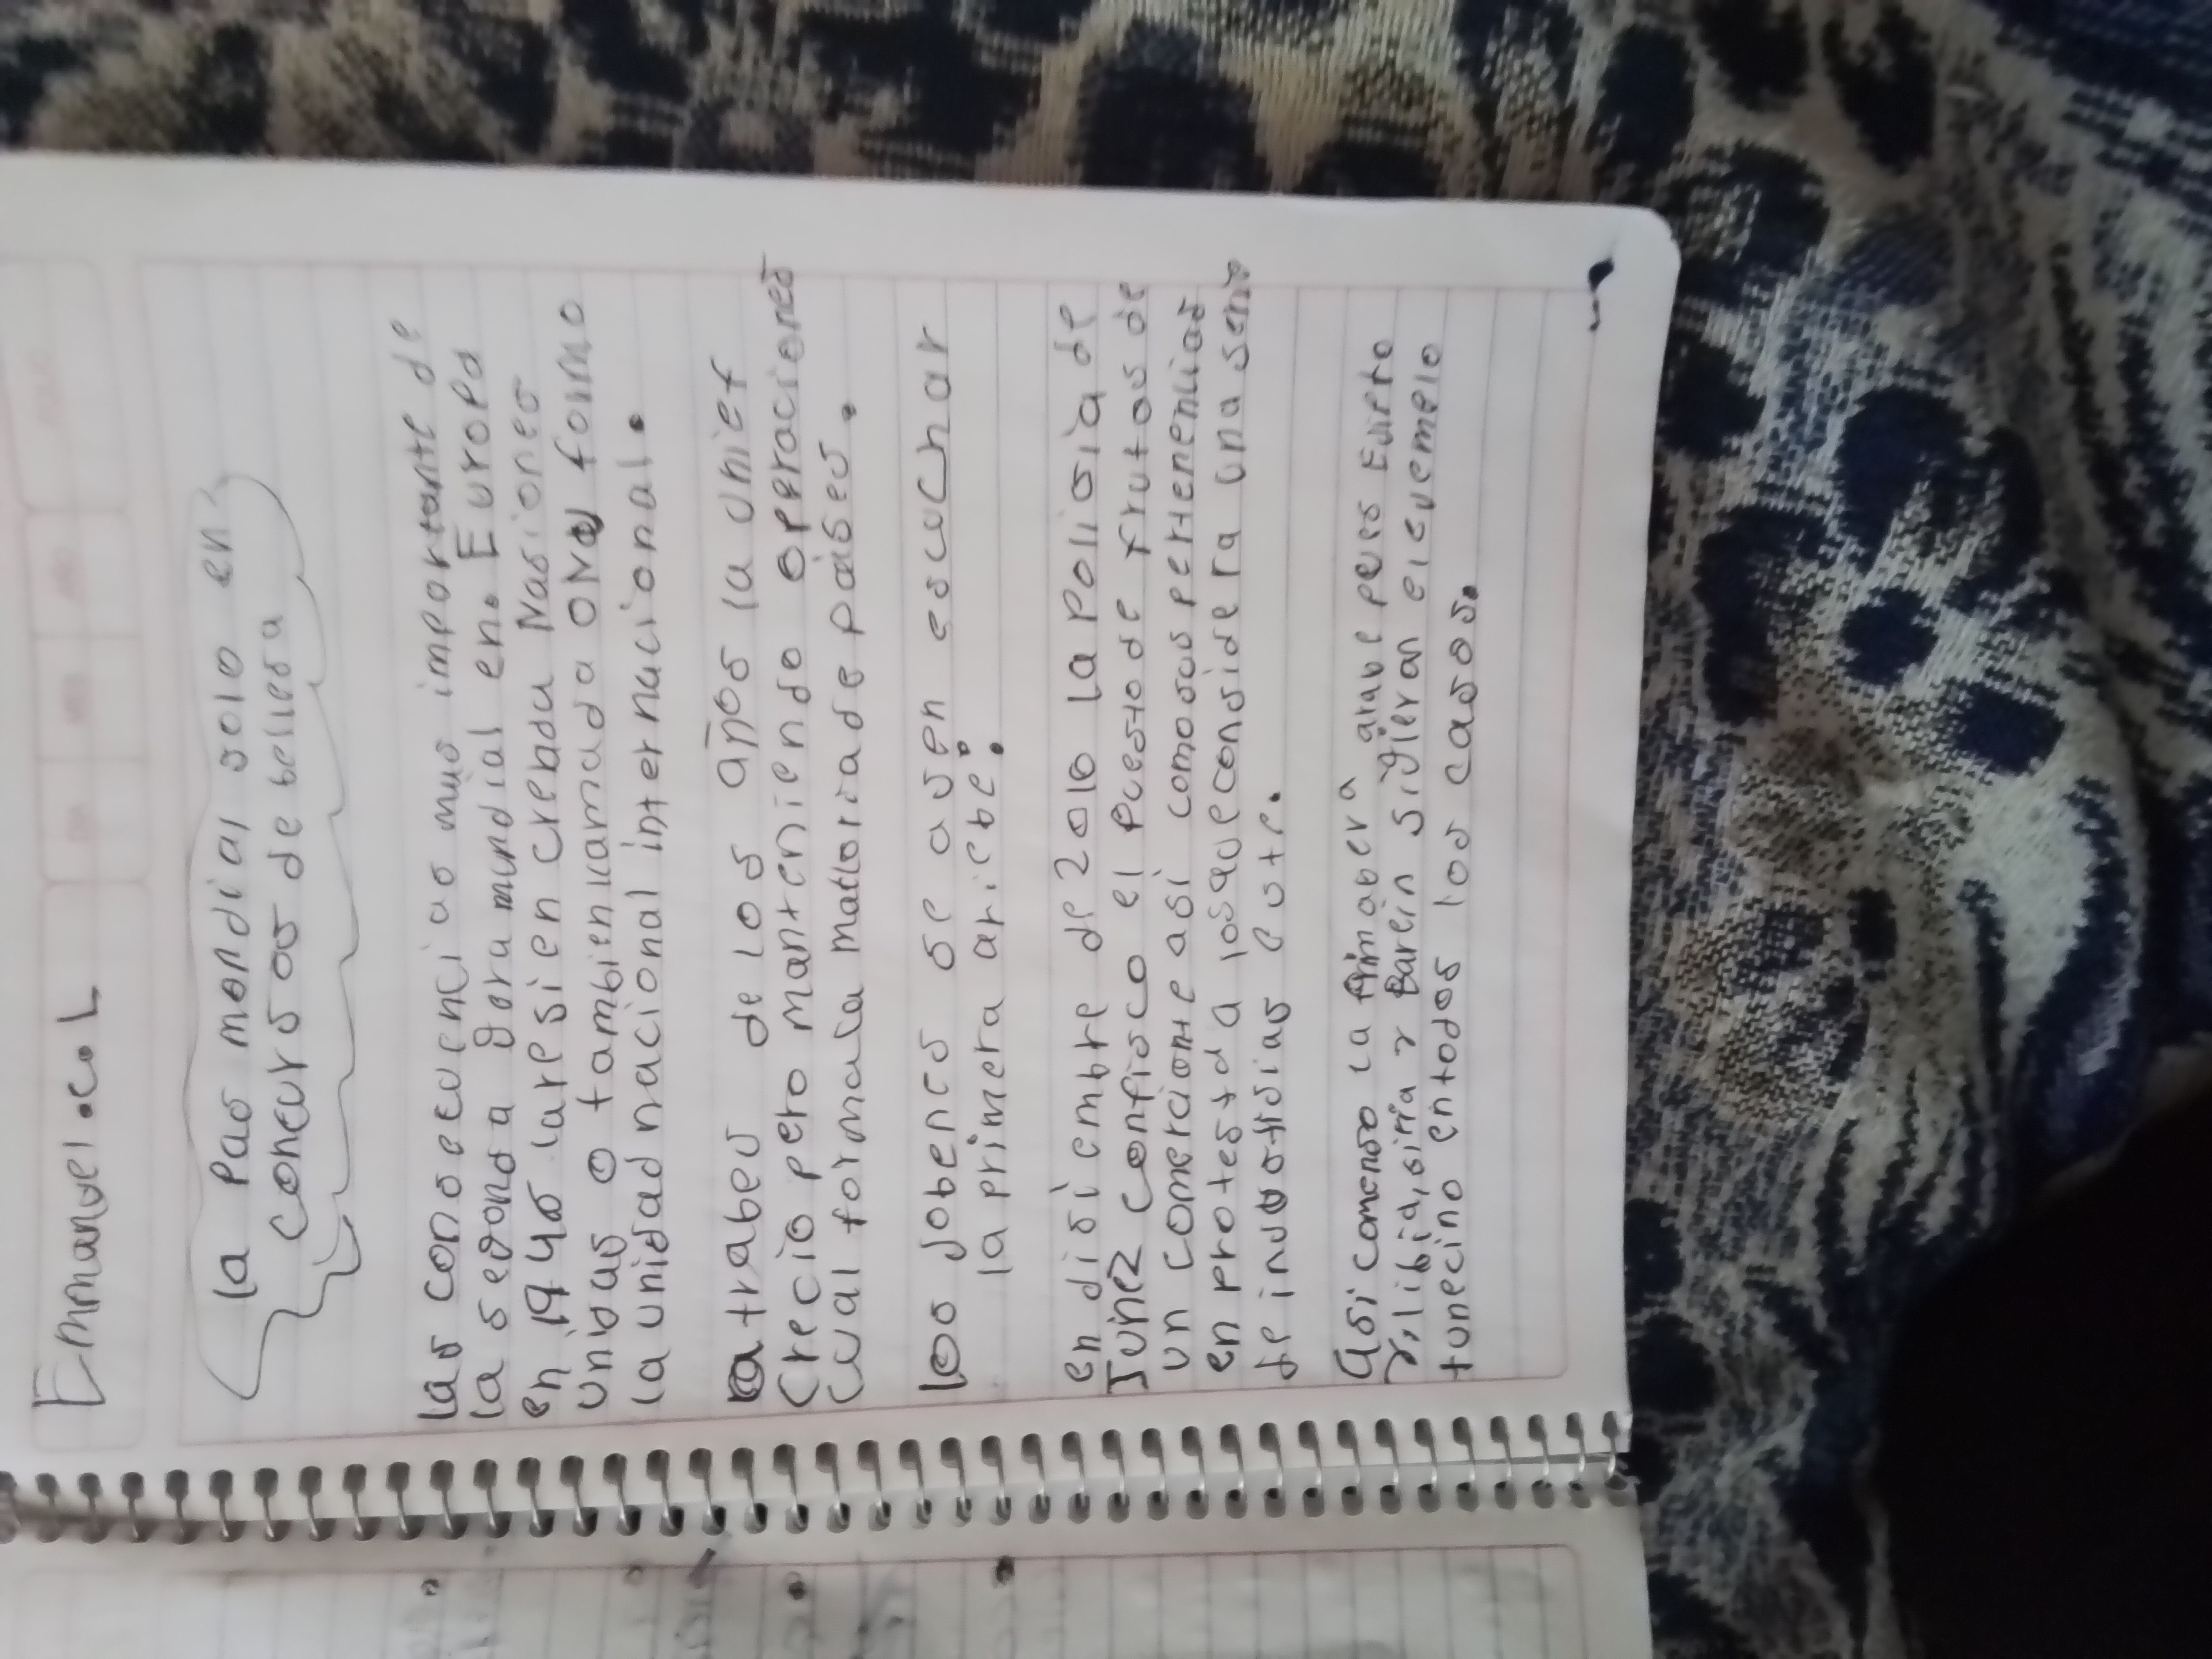 Emmanuel.c.L
la Pas mondial solo en
concursos de bellesa
las consecuencias mas importante de
la segonda gera mundial en. Europa
en 1945 la resien creada Nasiones
unidas o tambien llamada ONU formo
la unidad nacional internacional.
a trabes de los años la unief
Crecio pero manteniendo operaciones
cual formula malloria de paises.
los jobenes se asen escuchar
la primera aribe:
en disiembre de 2010 la Polisia de
Tunez confisco el Puesto de frutas de
un comerciante asi como sus pertenencias
en protesta a los que considera una serie
de injustisias
asi comenso la Primabera arabe pues Egipto
y, libia, siria y Barein siguieron el ejemplo
tunecino en todos los casos.